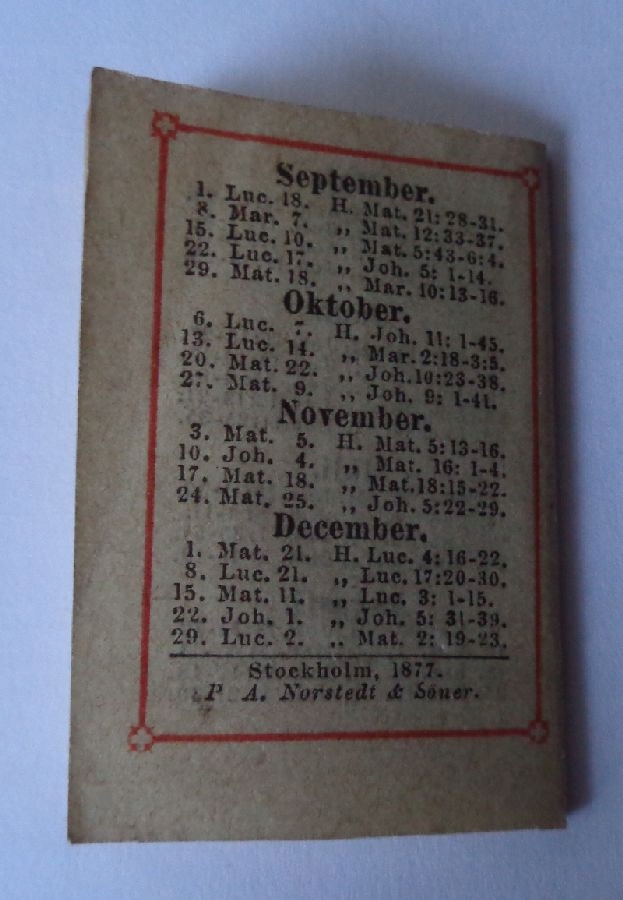 September.
1. Luc. 18. H. Mat. 21: 28-31.
8. Mar. 7. „ Mat. 12: 33-37.
15. Luc. 10. „ Mat. 5: 43-6: 4.
22. Luc. 17. „ Joh. 5: 1-14.
29. Mat. 18. „ Mar. 10: 13-16.
Oktober.
6. Luc. 7. H. Joh. 11: 1-45.
13. Luc. 14. „ Mar. 2: 18-3: 5.
20. Mat. 22. „ Joh. 10: 23-38.
27. Mat. 9. „ Joh. 9: 1-41.
November.
3. Mat. 5. H. Mat. 5: 13-16.
10. Joh. 4. „ Mat. 16: 1-4.
17. Mat. 18. „ Mat. 18: 15-22.
24. Mat. 25. „ Joh. 5: 22-29.
December.
1. Mat. 21. H. Luc. 4: 16-22.
8. Luc. 21. „ Luc. 17: 20-30.
15. Mat. 11. „ Luc. 3: 1-15.
22. Joh. 1. „ Joh. 5: 31-39.
29. Luc. 2. „ Mat. 2: 19-23.
Stockholm, 1877.
P A. Norstedt & Söner.